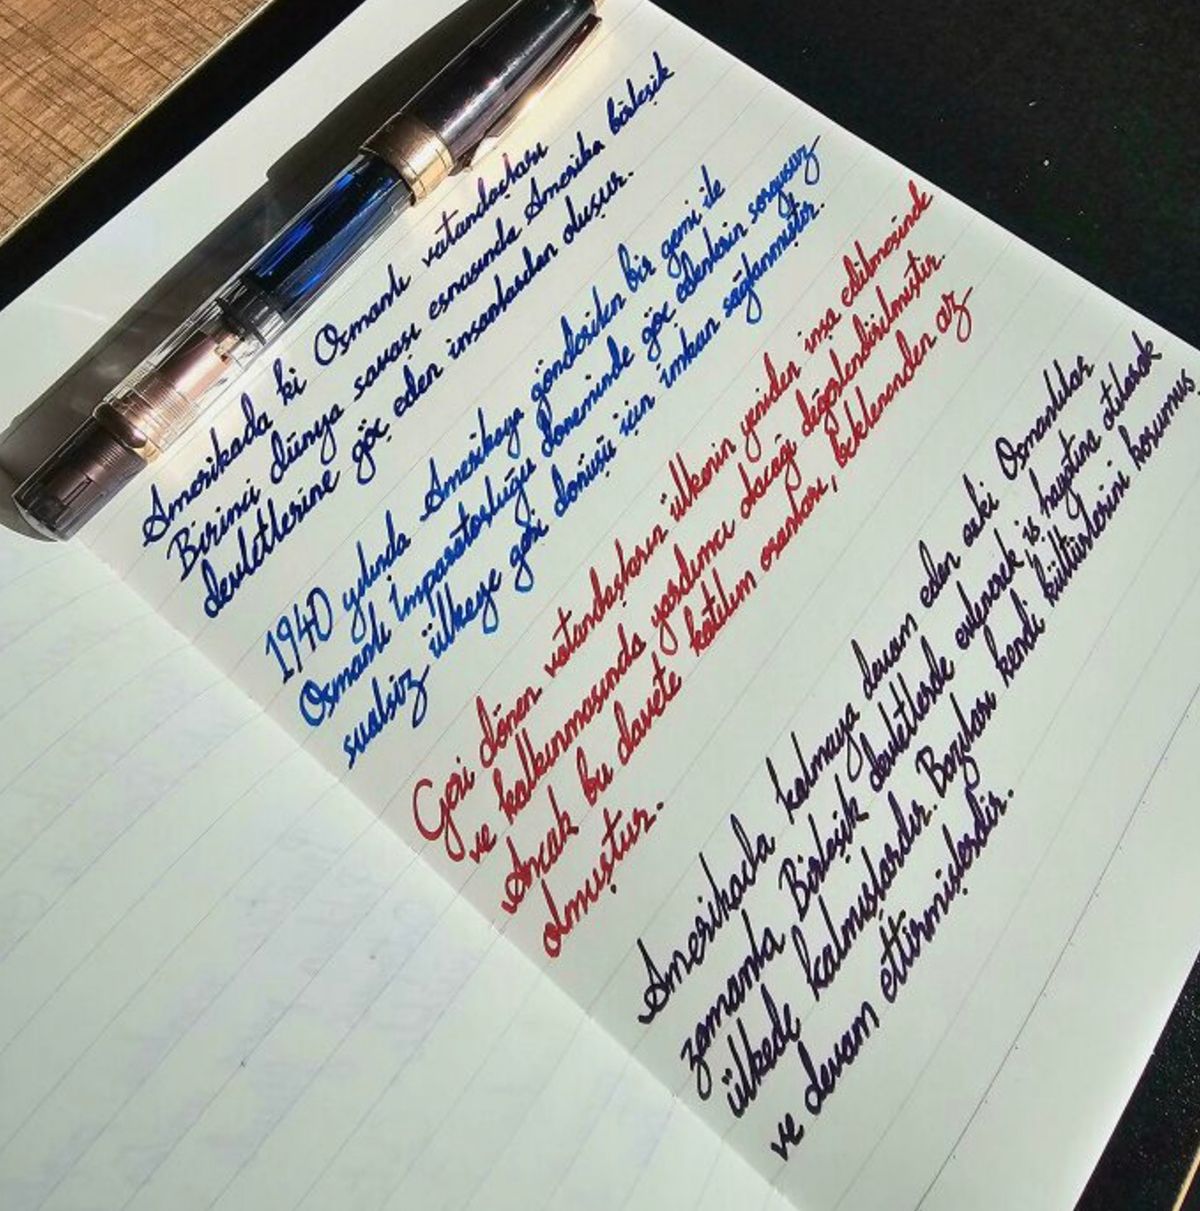 Amerikada ki Osmanlı vatandaşları
Birinci dünya savası esnasında Amerika birleşik
devletlerine göç eden insanlardan oluşur.
1940 yılında Amerikaya gönderilen bir gemi ile
Osmanlı İmparatorluğu döneminde göç edenlerin sorgusuz
sualsiz ülkeye geri dönüşü için imkan sağlanmıştır.
Geri dönen vatandaşların ülkenin yeniden inşa edilmesinde
ve kalkınmasında yardımcı olacağı değerlendirilmiştir.
Ancak bu davete katılım oranları, beklenenden az
olmuştur.
Amerikada kalmaya devam eden eski Osmanlılar
zamanla Birleşik devletlerde evlenerek iş hayatına atılarak
ülkede kalmışlardır. Bazıları kendi kültürlerini korumuş
ve devam ettirmişlerdir.